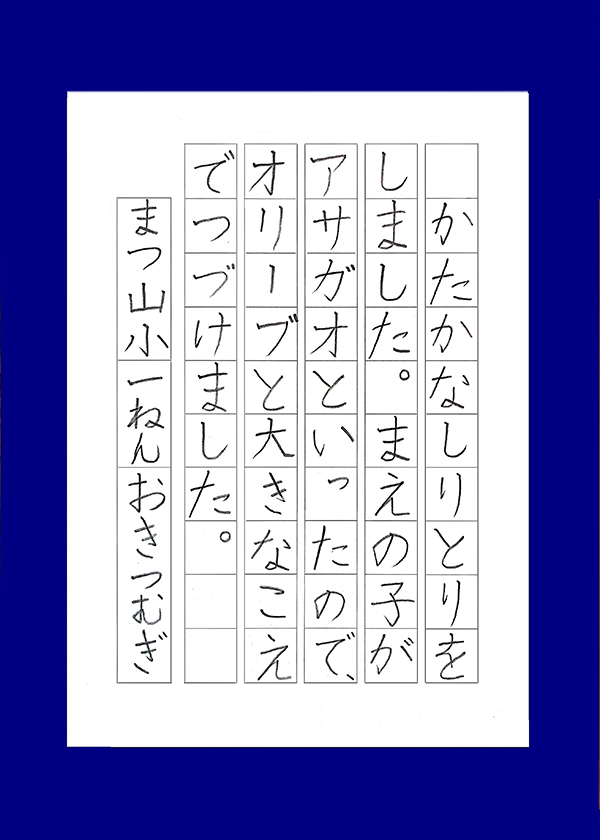 かたかなしりとりを
しました。まえの子が
アサガオといったので、
オリーブと大きなこえ
でつづけました。
まつ山小一ねんおきつむぎ